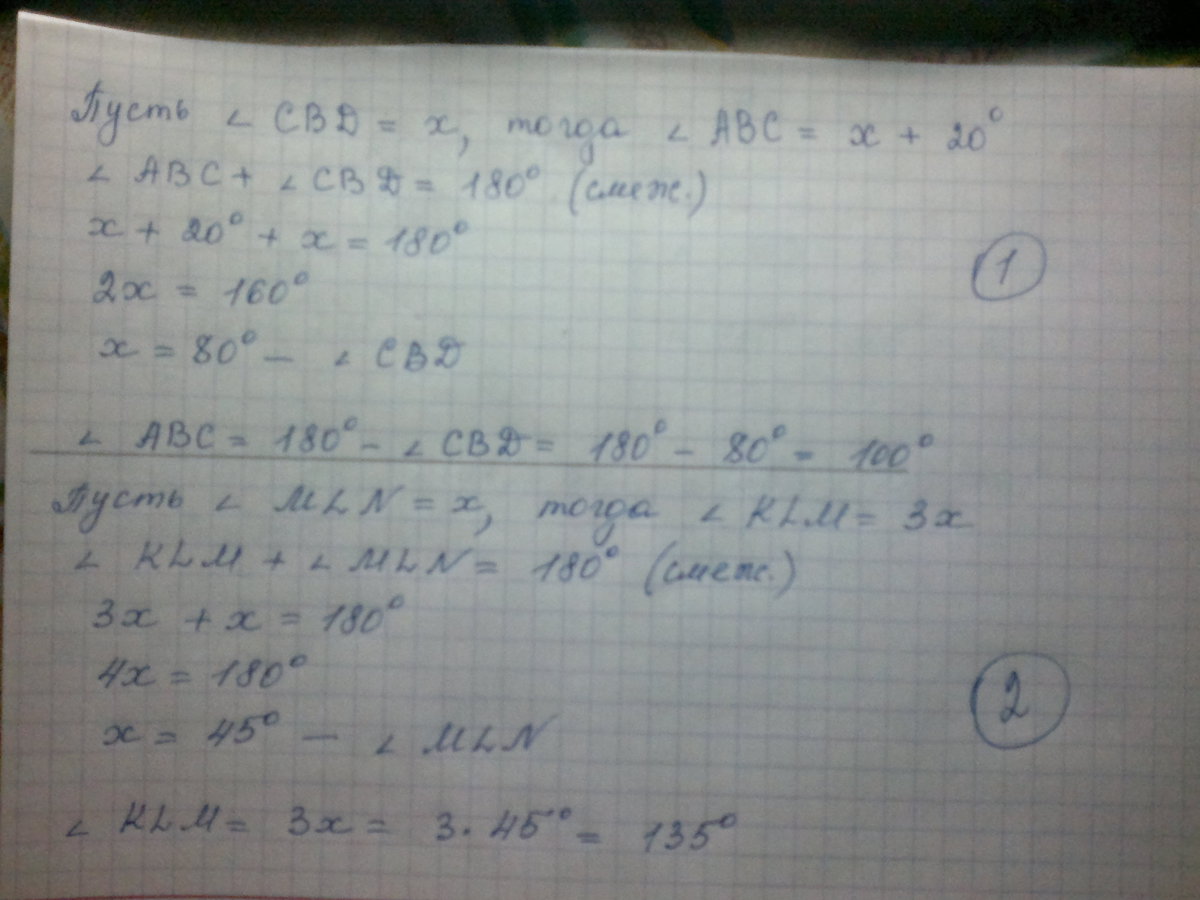 Пусть ∠ CBD = x, тогда ∠ ABC = x + 20°
∠ ABC + ∠ CBD = 180° (смеж.)
x + 20° + x = 180°
1
2x = 160°
x = 80° — ∠ CBD
∠ ABC = 180° - ∠ CBD = 180° - 80° = 100°
Пусть ∠ MLN = x, тогда ∠ KLM = 3x
∠ KLM + ∠ MLN = 180° (смеж.)
3x + x = 180°
4x = 180°
2
x = 45° — ∠ MLN
∠ KLM = 3x = 3 · 45° = 135°